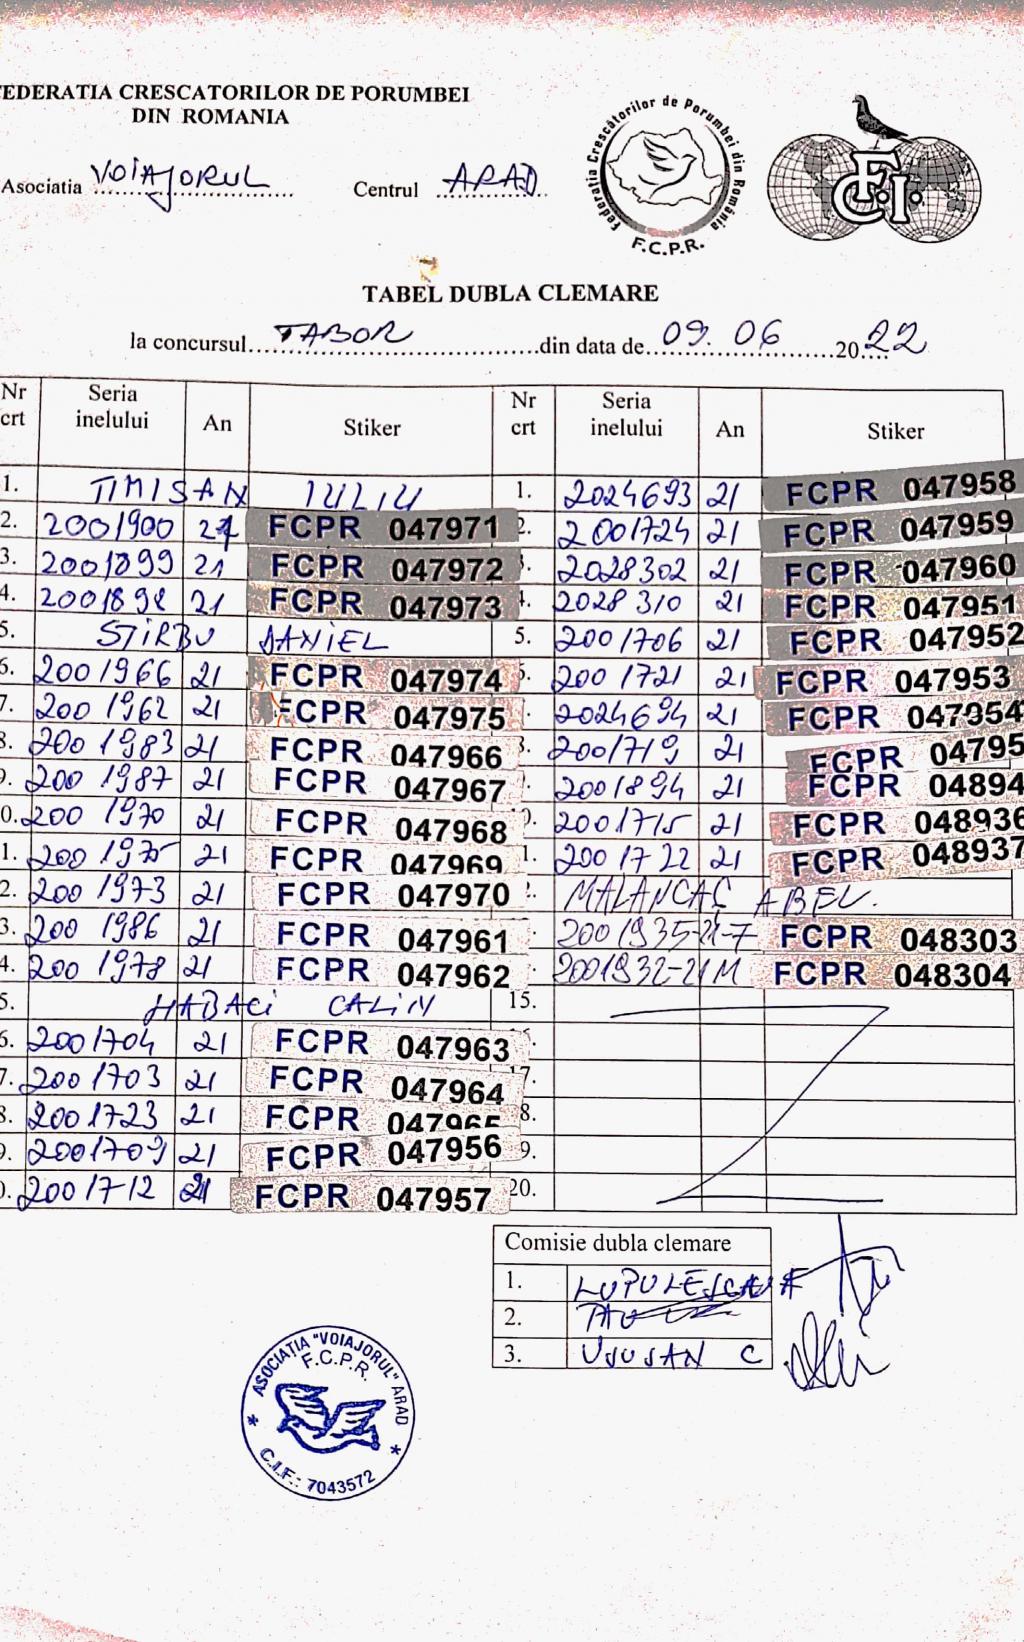 FEDERATIA CRESCATORILOR DE PORUMBEI
DIN ROMANIA
Asociatia VOIAJORUL Centrul ARAD
Federatia Crescătorilor de Porumbei din România
F.C.P.R.
F.C.I.
TABEL DUBLA CLEMARE
la concursul TABOR din data de 09. 06 2022
Nr crt Seria inelului An Stiker Nr crt Seria inelului An Stiker
1. TIMISAN IULIU
2. 2001900 21 FCPR 047971
3. 2001899 21 FCPR 047972
4. 2001898 21 FCPR 047973
5. STIRBU DANIEL
6. 2001966 21 FCPR 047974
7. 2001962 21 FCPR 047975
8. 2001983 21 FCPR 047966
9. 2001987 21 FCPR 047967
0. 2001970 21 FCPR 047968
1. 2001975 21 FCPR 047969
2. 2001973 21 FCPR 047970
3. 2001986 21 FCPR 047961
4. 2001978 21 FCPR 047962
5. HABACI CALIN
6. 2001704 21 FCPR 047963
7. 2001703 21 FCPR 047964
8. 2001723 21 FCPR 047965
9. 2001709 21 FCPR 047956
0. 2001712 21 FCPR 047957
1. 2024693 21 FCPR 047958
2. 2001724 21 FCPR 047959
3. 2028302 21 FCPR 047960
4. 2028310 21 FCPR 047951
5. 2001706 21 FCPR 047952
2001721 21 FCPR 047953
2024694 21 FCPR 047954
2001719 21 FCPR 04795
2001894 21 FCPR 04894
2001715 21 FCPR 048936
1. 2001722 21 FCPR 048937
MALANCAC ABEL.
2001935-21-F FCPR 048303
2001932-21M FCPR 048304
15.
17.
8.
9.
20.
Comisie dubla clemare
1. LUPULESCU F
2.
3. USUSAN C
ASOCIATIA "VOIAJORUL" ARAD
F.C.P.R.
C.I.F.: 7043572